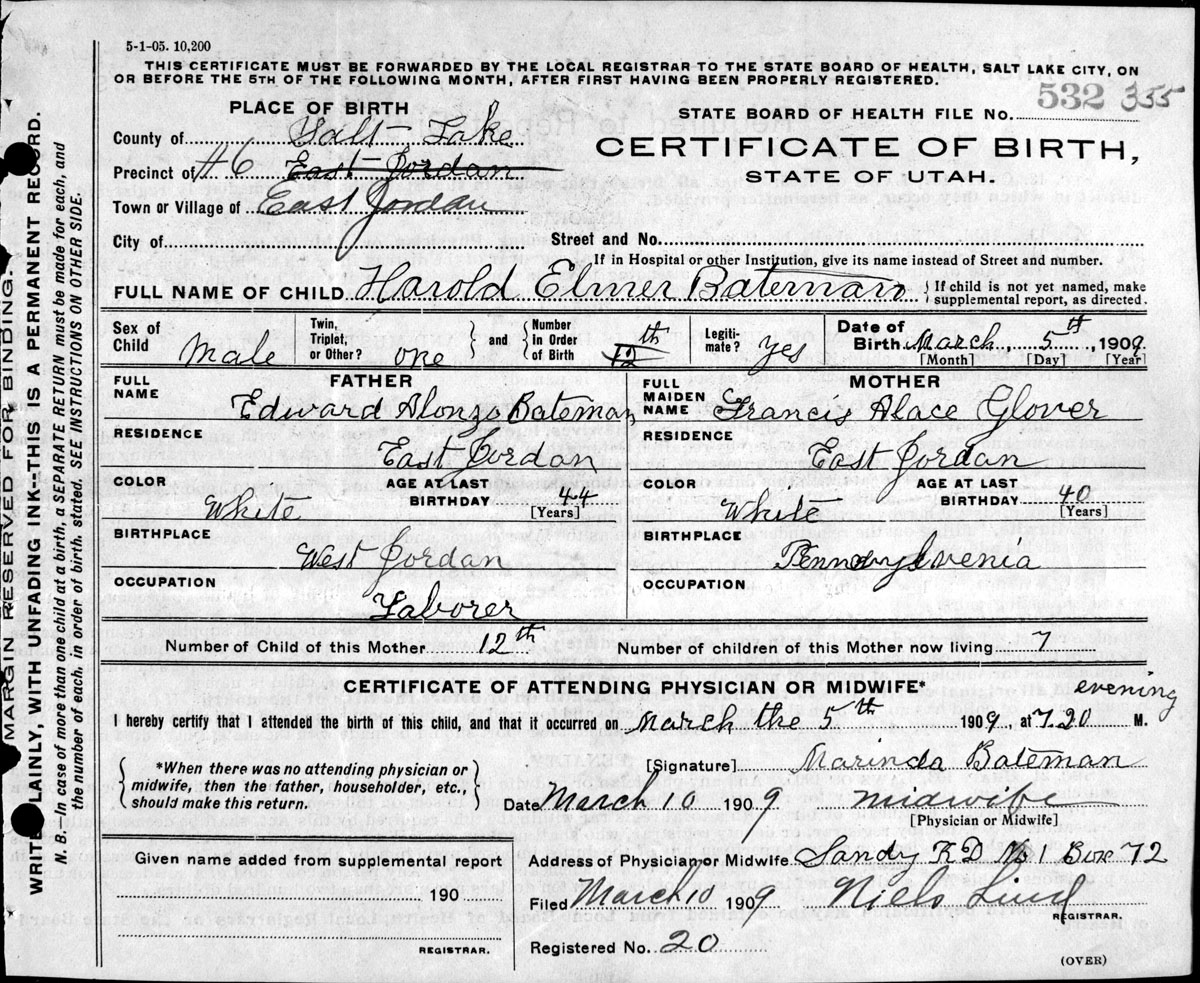 5-1-05. 10,200
THIS CERTIFICATE MUST BE FORWARDED BY THE LOCAL REGISTRAR TO THE STATE BOARD OF HEALTH, SALT LAKE CITY, ON
OR BEFORE THE 5TH OF THE FOLLOWING MONTH, AFTER FIRST HAVING BEEN PROPERLY REGISTERED.
PLACE OF BIRTH
STATE BOARD OF HEALTH FILE No. 532 355
County of Salt Lake
CERTIFICATE OF BIRTH,
Precinct of #6 East Jordan
STATE OF UTAH.
Town or Village of East Jordan
City of Street and No.
If in Hospital or other Institution, give its name instead of Street and number.
FULL NAME OF CHILD Harold Elmer Bateman { If child is not yet named, make
supplemental report, as directed.
Sex of Child Male Twin, Triplet, or Other? one } and { Number In Order of Birth 12th Legiti-mate? yes Date of Birth March 5th, 1909.
[Month] [Day] [Year]
FATHER MOTHER
FULL NAME Edward Alonzo Bateman, FULL MAIDEN NAME Francis Alace Glover
RESIDENCE East Jordan RESIDENCE East Jordan
COLOR White AGE AT LAST BIRTHDAY 44 [Years] COLOR White AGE AT LAST BIRTHDAY 40 [Years]
BIRTHPLACE West Jordan BIRTHPLACE Pennsylvenia
OCCUPATION Laborer OCCUPATION
Number of Child of this Mother 12th Number of children of this Mother now living 7
CERTIFICATE OF ATTENDING PHYSICIAN OR MIDWIFE*
I hereby certify that I attended the birth of this child, and that it occurred on March the 5th 1909, at 7.20 evening M.
*When there was no attending physician or
midwife, then the father, householder, etc.,
should make this return.
[Signature] Marinda Bateman
Date March 10 1909 midwife
[Physician or Midwife]
Given name added from supplemental report
190
REGISTRAR.
Address of Physician or Midwife Sandy R D No 1 Box 72
Filed March 10 1909 Niels Lind
REGISTRAR.
Registered No. 20
(OVER)
MARGIN RESERVED FOR BINDING.
WRITE LAINLY, WITH UNFADING INK--THIS IS A PERMANENT RECORD.
N. B.—In case of more than one child at a birth, a SEPARATE RETURN must be made for each, and
the number of each, in order of birth, stated. SEE INSTRUCTIONS ON OTHER SIDE.